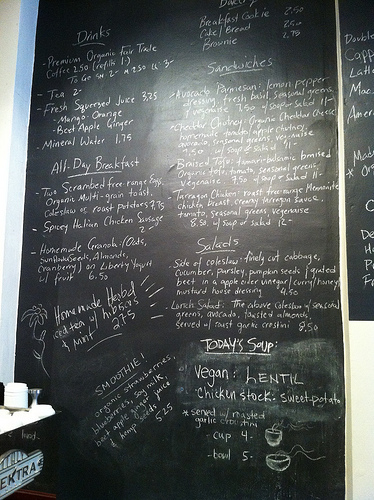 Drinks
- Premium Organic Fair Trade
Coffee 2.50 (refill 1-)
To Go
- Tea 2-
- Fresh Squeezed Juice 3.25
- Mango Orange
- Beet Apple Ginger
- Mineral Water 1.75
All-Day Breakfast
- Two Scrambled free-range Eggs,
Organic Multi-grain toast,
Coleslaw or roast potatoes 7.75
- Spicy Italian Chicken Sausage
2-
- Homemade Granola: Oats,
Sunflower seeds, Almonds,
Cranberry) on Liberty Yogurt
w/ fruit 6.50
Homemade Herbal
iced tea w/ hibiscus
& mint 2.75
SMOOTHIE!
organic strawberries,
blueberries, soy milk
beet apple ginger juice
& hemp seeds
5.25
Breakfast Cookie 2.50
Cake/Bread 2.50
Brownie 2.75
Sandwiches
- Avocado Parmesan: lemon pepper
dressing, fresh basil, seasonal greens,
vegenaise 7.50 w/ soup or salad 11-
- Cheddar Chutney: Organic Cheddar Cheese,
homemade tomato apple chutney,
avocado, seasonal greens, vegenaise
7.50 w/ soup or salad 11-
- Braised Tofu: tamari-balsamic braised
Organic tofu, tomato, seasonal greens,
vegenaise. 7.50 w/ soup or salad 11-
- Tarragon Chicken: roast free-range Mennonite
chicken breast, creamy tarragon sauce,
tomato, seasonal greens, vegenaise
8.50 w/ soup or salad 12-
Salads
- Side of coleslaw: finely cut cabbage,
cucumber, parsley, pumpkin seeds / grated
beet in a apple cider vinegar/curry/honey/
mustard house dressing 4.50
- Lunch Salad: The above coleslaw w/ seasonal
greens, avocado, toasted almonds,
served w/ roast garlic crostini 8.50
TODAY'S SOUP:
Vegan: LENTIL
Chicken stock: sweet-potato
* served w/ roasted
garlic crostini
- cup 4-
- bowl 5-
Double
Capp
Latte
Mac
Amer
EKTRA